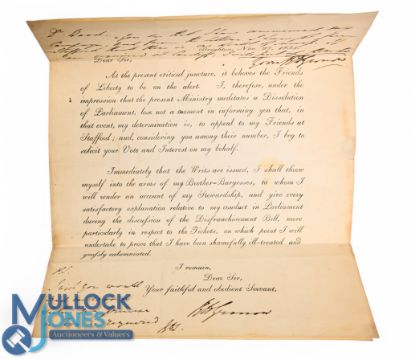 Dear Sir,
At the present critical juncture, it behoves the Friends
of Liberty to be on the alert. I, therefore, under the
impression that the present Ministry meditates a Dissolution
of Parliament, lose not a moment in informing you that, in
that event, my determination is, to appeal to my Friends at
Stafford; and, considering you among their number, I beg to
solicit your Vote and Interest on my behalf.
Immediately that the Writs are issued, I shall throw
myself into the arms of my Brother-Burgesses, to whom I
will render an account of my Stewardship, and give every
satisfactory explanation relative to my conduct in Parliament
during the discussion of the Disfranchisement Bill, more
particularly in respect to the Tickets, on which point I will
undertake to prove that I have been shamefully ill-treated and
grossly calumniated.
I remain,
Dear Sir,
Your faithful and obedient Servant,
you would
MULLOCK
JONES
Auctioneers & Valuers